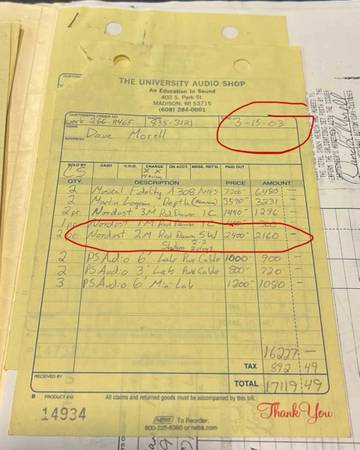 THE UNIVERSITY AUDIO SHOP
An Education in Sound
402 S. Park St.
MADISON, WI 53715
(608) 284-0001
CUSTOMER'S ORDER NO.
work 266-8965 835-3121 3-15-03
Dave Morell
SOLD BY CASH C.O.D. CHARGE ON ACCT. MDSE. RETD. PAID OUT
CS X X
QTY. DESCRIPTION PRICE AMOUNT
2 Musical Fidelity A308 6480 —
2 Martin Logan Depth 3590 3231 —
2 pr Nordost 3M Red Dawn IC 1440 1296 —
1 pr Nordost 1M Red Dawn IC
2 pr Nordost 2M Red Dawn SW 2400 2160 —
2 PS Audio 6' Lab Pwr Cable 1000 900 —
2 PS Audio 3' Lab Pwr Cable 800 720 —
3 PS Audio 6' Mini Lab 1200 1080 —
16227 —
TAX 892 49
RECEIVED BY
TOTAL 17119 49
B PRODUCT 610 All claims and returned goods must be accompanied by this bill.
14934
NEBS To Reorder:
800-225-6380 or nebs.com
Thank You